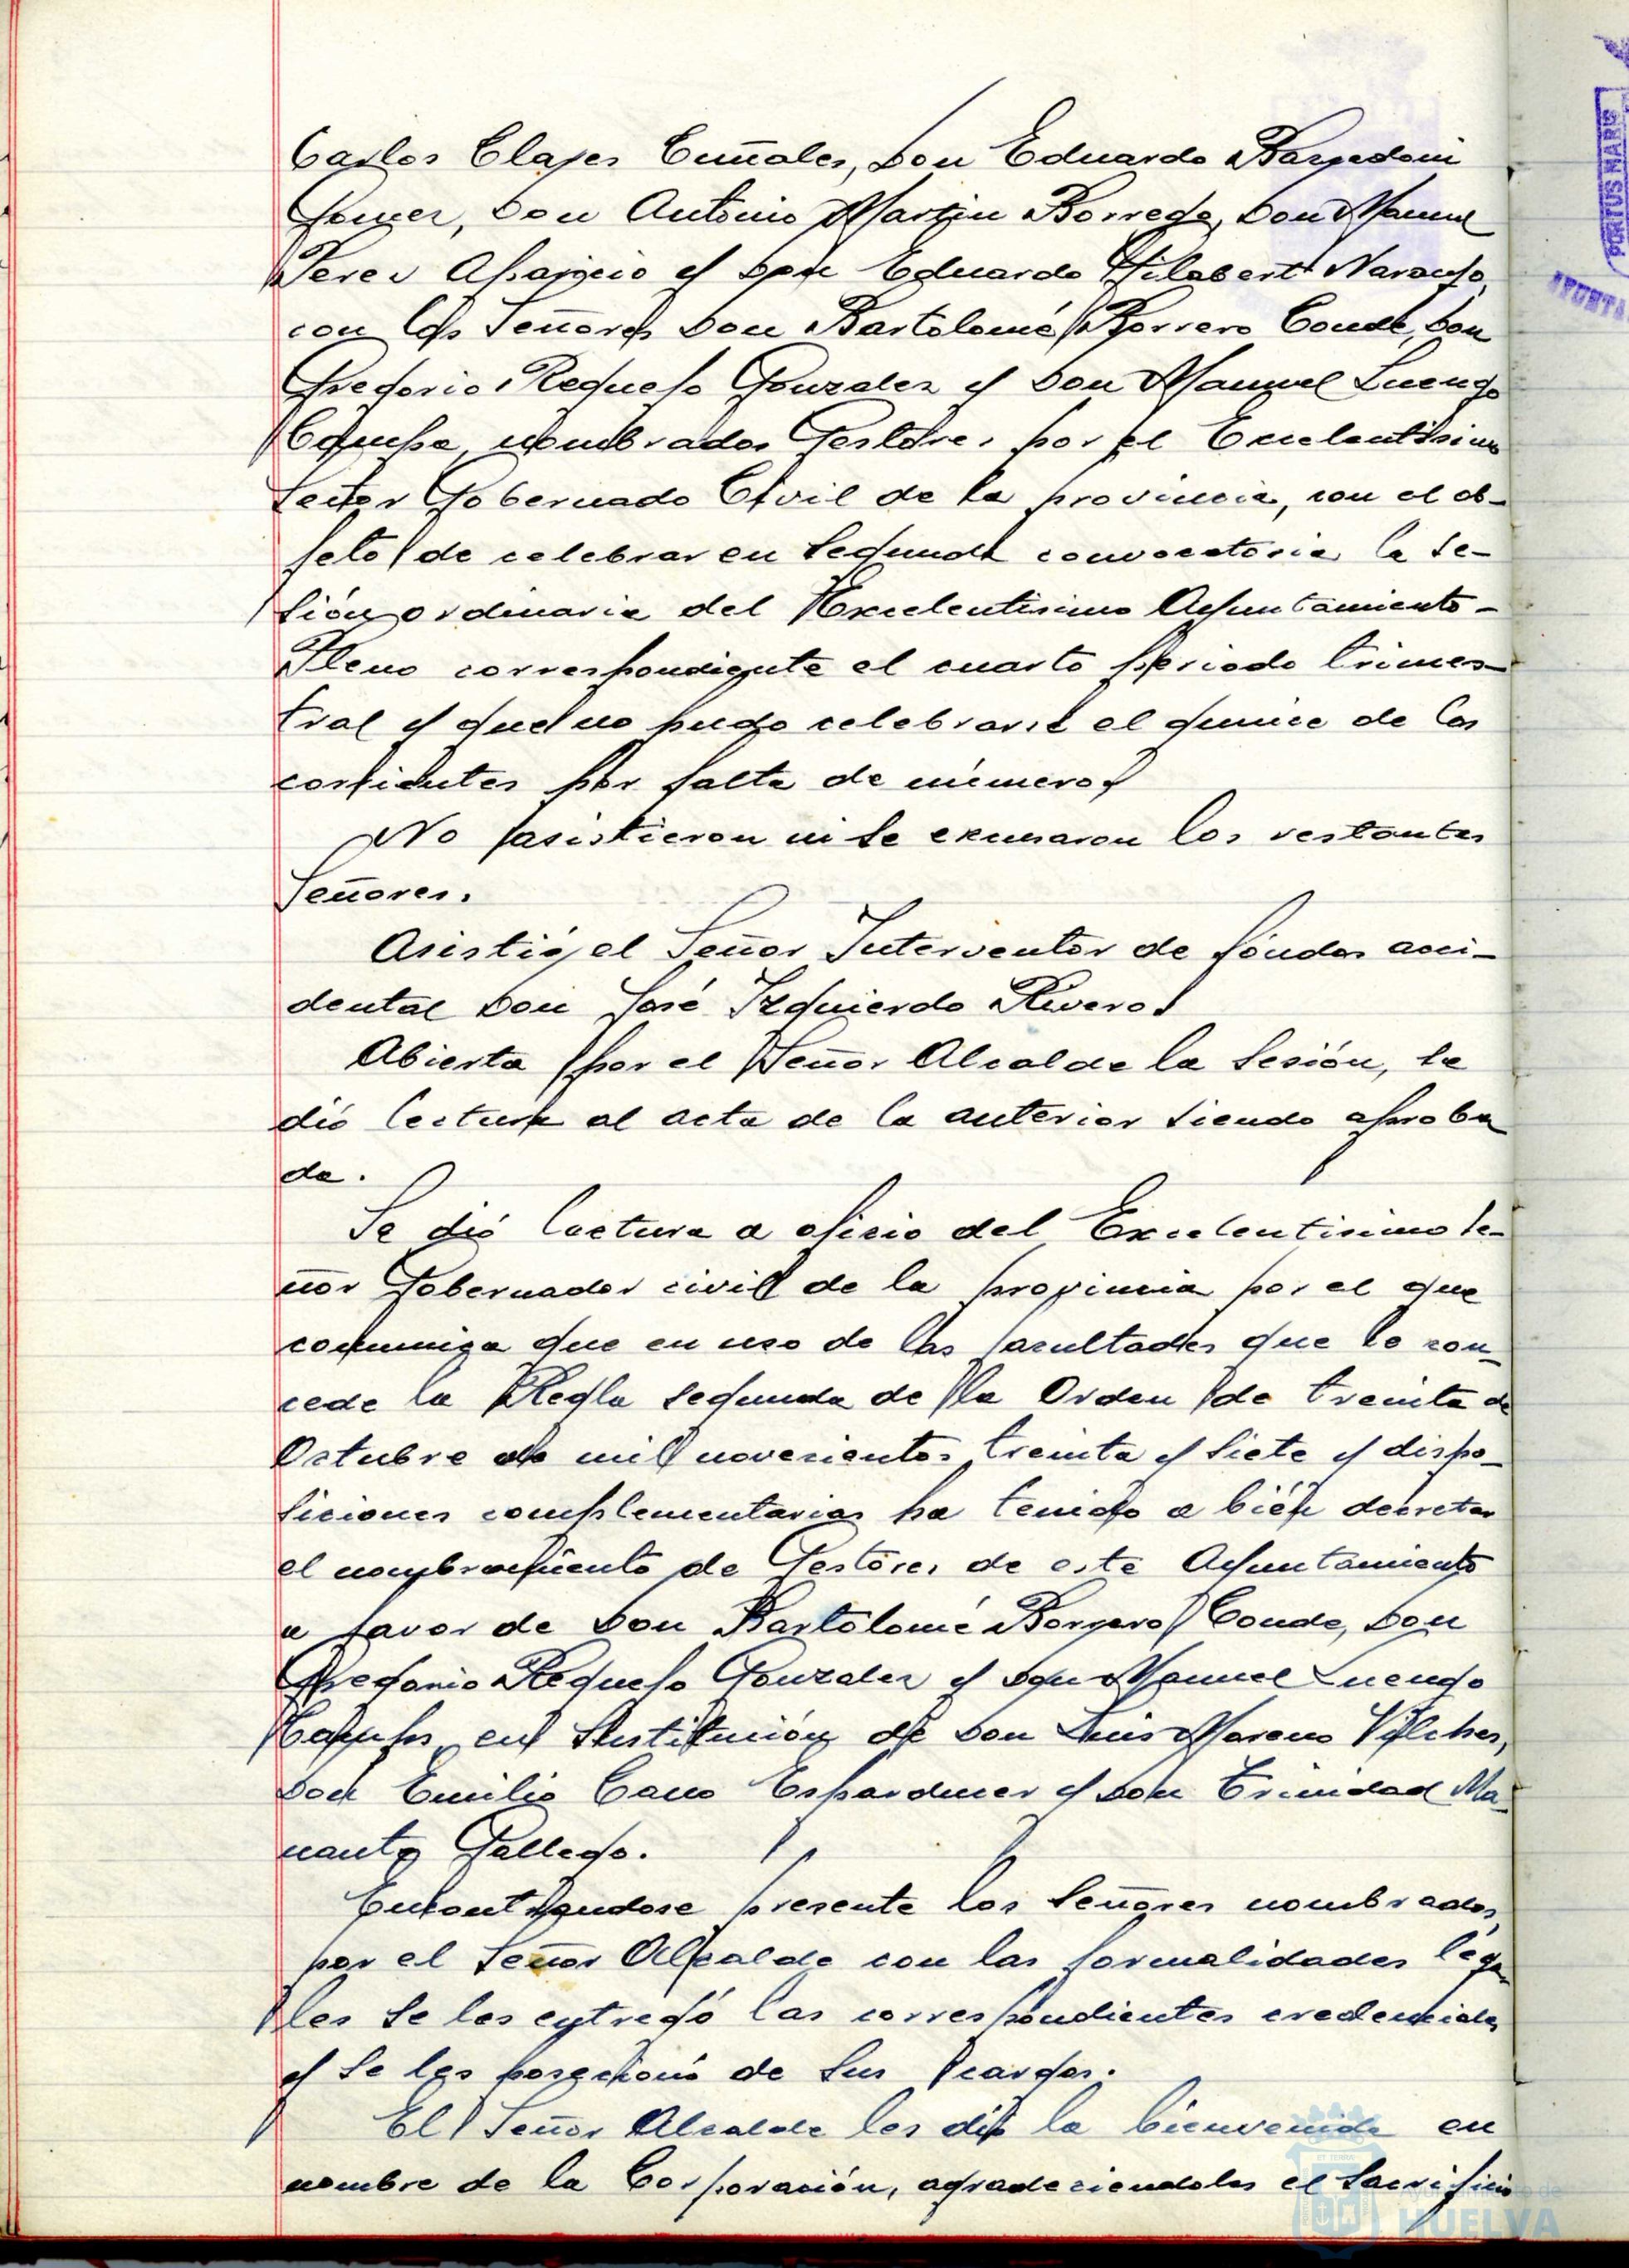 Carlos Clapes Cuñales, Don Eduardo Bargadoni
Gomez, Don Antonio Martin Borrego, Don Manuel
Perez Aparicio y Don Eduardo Gilabert Naranjo,
con los Señores Don Bartolomé Borrero Conde, Don
Gregorio Requejo Gonzalez y Don Manuel Luengo
nombrados Gestores por el Excelentisimo
Señor Gobernado Civil de la provincia, con el ob-
jeto de celebrar en segunda convocatoria la se-
sión ordinaria del Excelentisimo Ayuntamiento-
Pleno correspondiente el cuarto periodo trimes-
tral y que no pudo celebrarse el quince de los
corrientes por falta de número.
No asistieron ni se excusaron los restantes
Señores.
Asistió el Señor Interventor de fondos acci-
dental Don José Izquierdo Rivero.
Abierta por el Señor Alcalde la sesión, se
dió lectura al acta de la anterior siendo aproba
da.
Se dió lectura a oficio del Excelentisimo Se-
ñor Gobernador civil de la provincia por el que
comuniga que en uso de las facultades que le con-
cede la Regla segunda de la Orden de treinta de
Octubre de mil novecientos treinta y siete y dispo-
siciones complementarias ha tenido a bién decretar
el nombramiento de Gestores de este Ayuntamiento
a favor de Don Bartolomé Borrero Conde, Don
Gregorio Requejo Gonzalez y Don Manuel Luengo
en sustitución de Don Luis Moreno Vilches,
Don Emilio Cano Esparducer y Don Trinidad Ma-
nanto Gallego.
Encontrandose presente los Señores nombrados,
por el Señor Alcalde con las formalidades lega
les se les entregó las correspondientes credenciales
y se les posecionó de sus cargos.
El Señor Alcalde les dió la bienvenida en
nombre de la Corporación, agradeciendoles el sacrificio
PORTUS MARIS
HUELVA